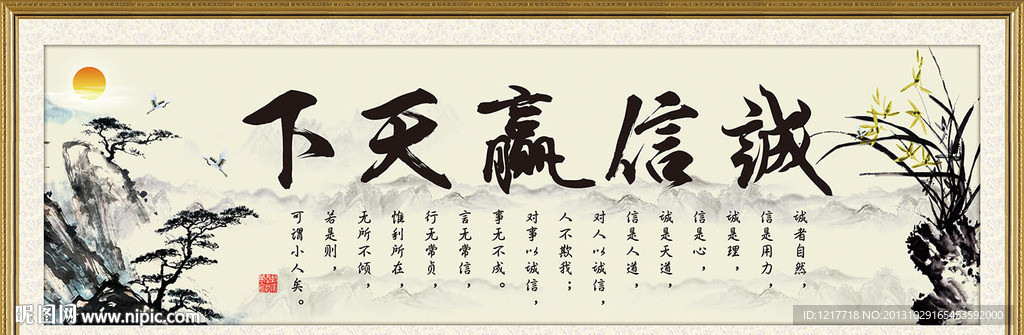 誠信赢天下
誠者自然，
信是用力，
誠是理，
信是心，
誠是天道，
信是人道，
对人以诚信，
人不欺我；
对事以诚信，
事无不成。
言无常信，
行无常贞，
惟利所在，
无所不倾，
若是则，
可谓小人矣。
昵图网 www.nipic.com
ID:1217718 NO:20131029165453592000